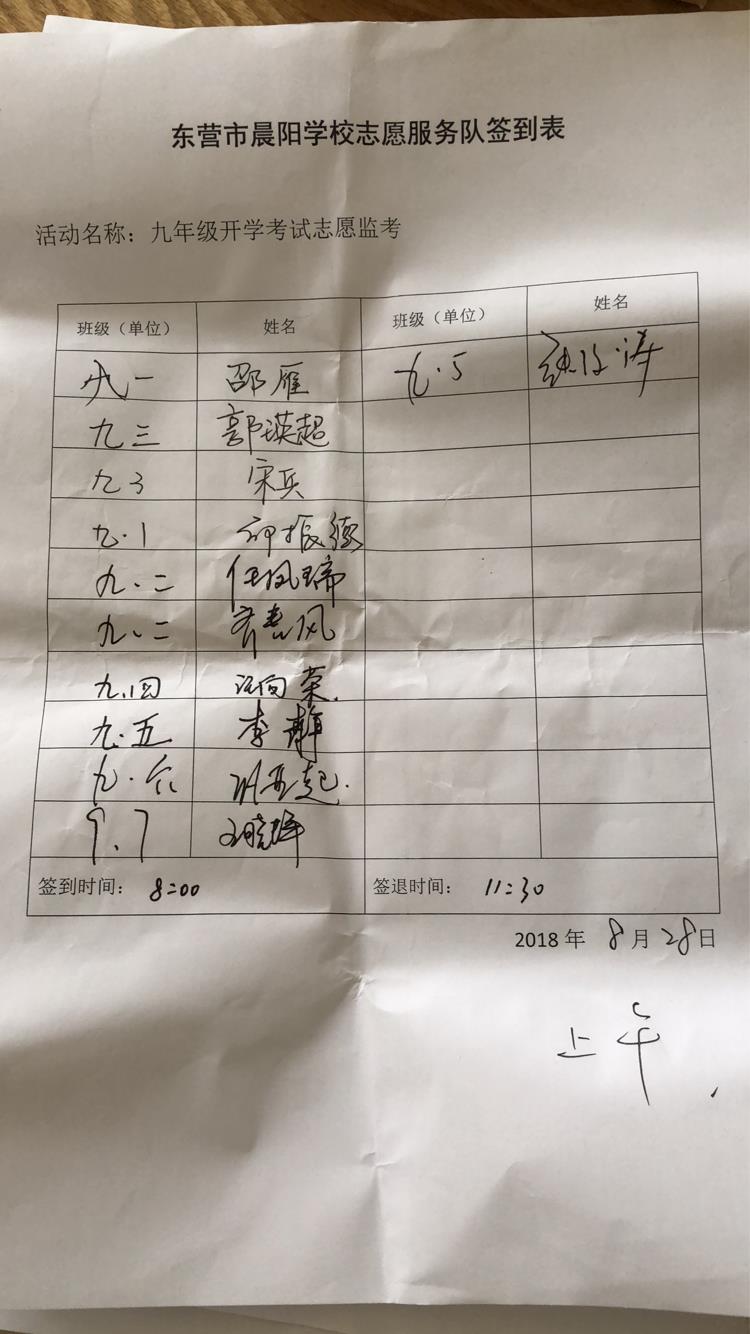 东营市晨阳学校志愿服务队签到表
活动名称：九年级开学考试志愿监考
班级（单位） 姓名 班级（单位） 姓名
九一 邵雁 九.5
九三 郭瑛超
九3 宋兵
九.1
九.二 任凤瑞
九.二 齐春风
九.四 向荣
九.五 李静
九.六
9.7 王晓峰
签到时间： 8:00 签退时间： 11:30
2018年 8月28日
上午